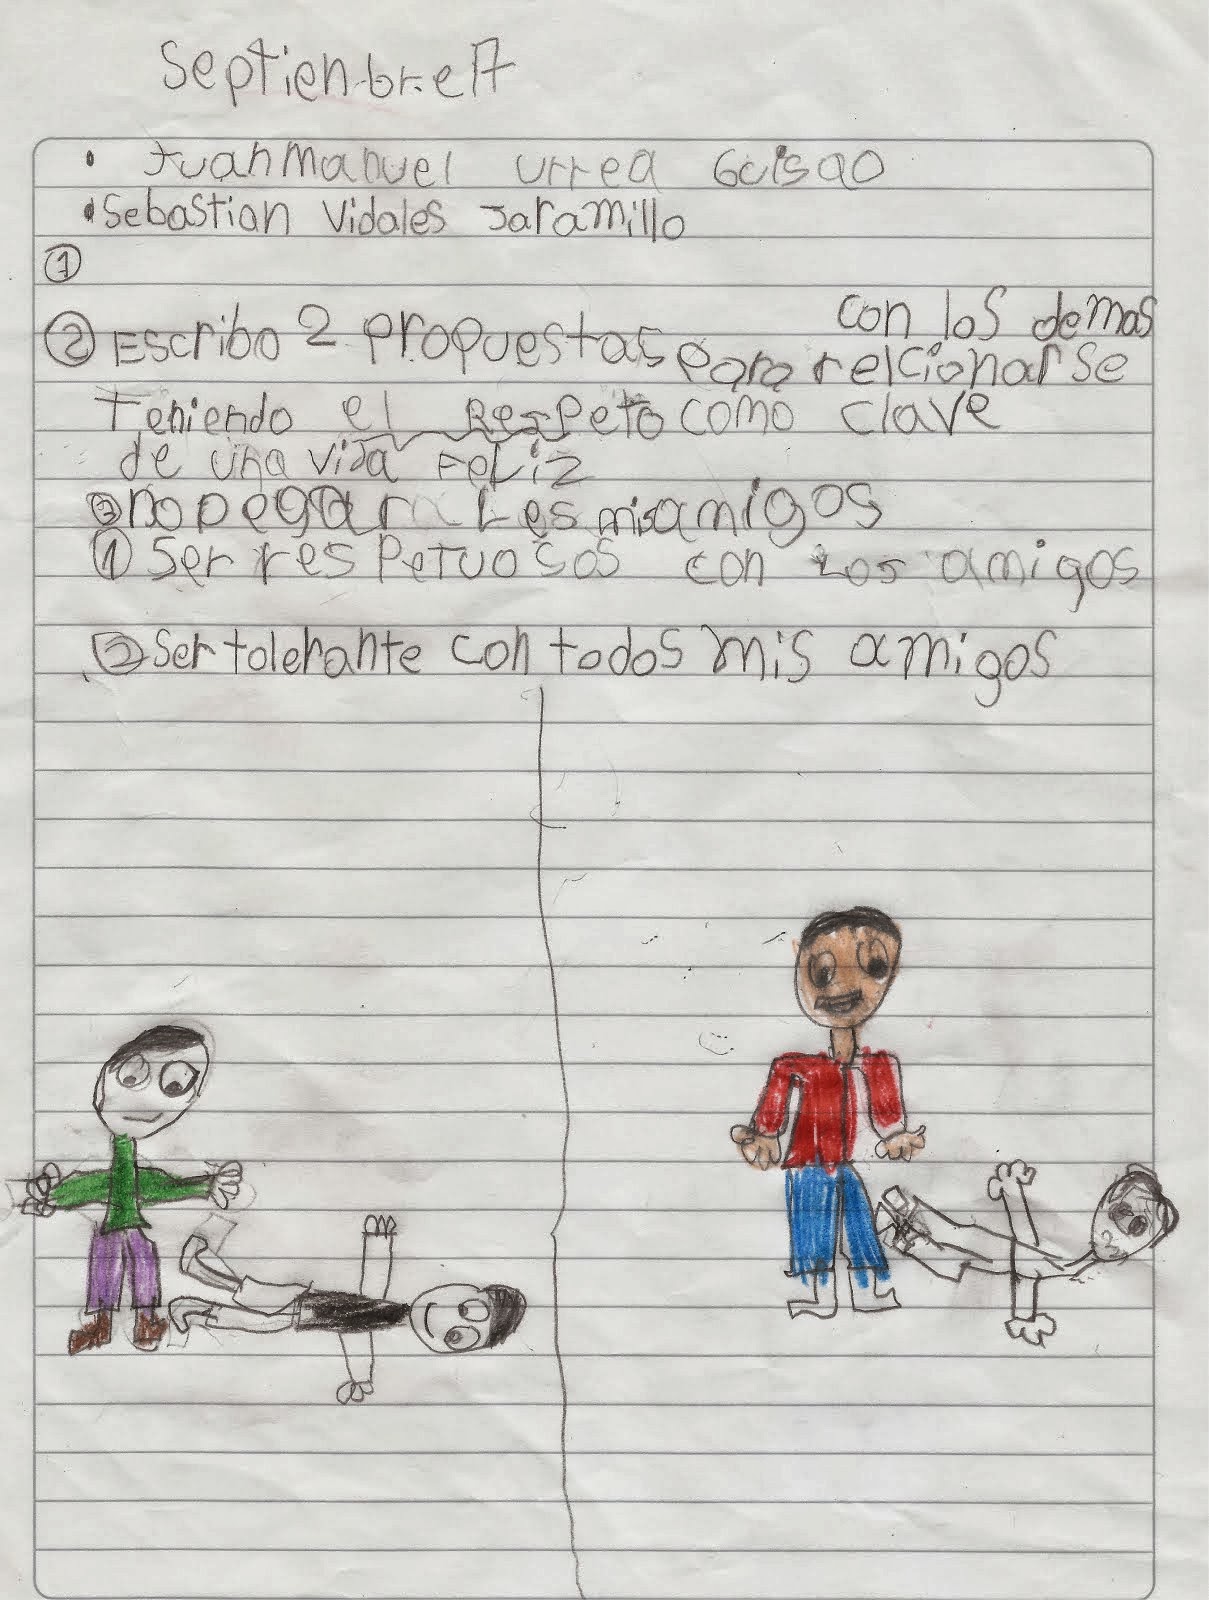 Septienbre 17
• Juan Manuel urrea Guisao
• Sebastian Vidales Jaramillo
①
con los demas
② Escribo 2 propuestas para relcionarse
Teniendo el Respeto como clave
de una vida Feliz
② no pegar Les mis amigos
① Ser res petuosos con Los amigos
② Ser tolerante con todos mis amigos